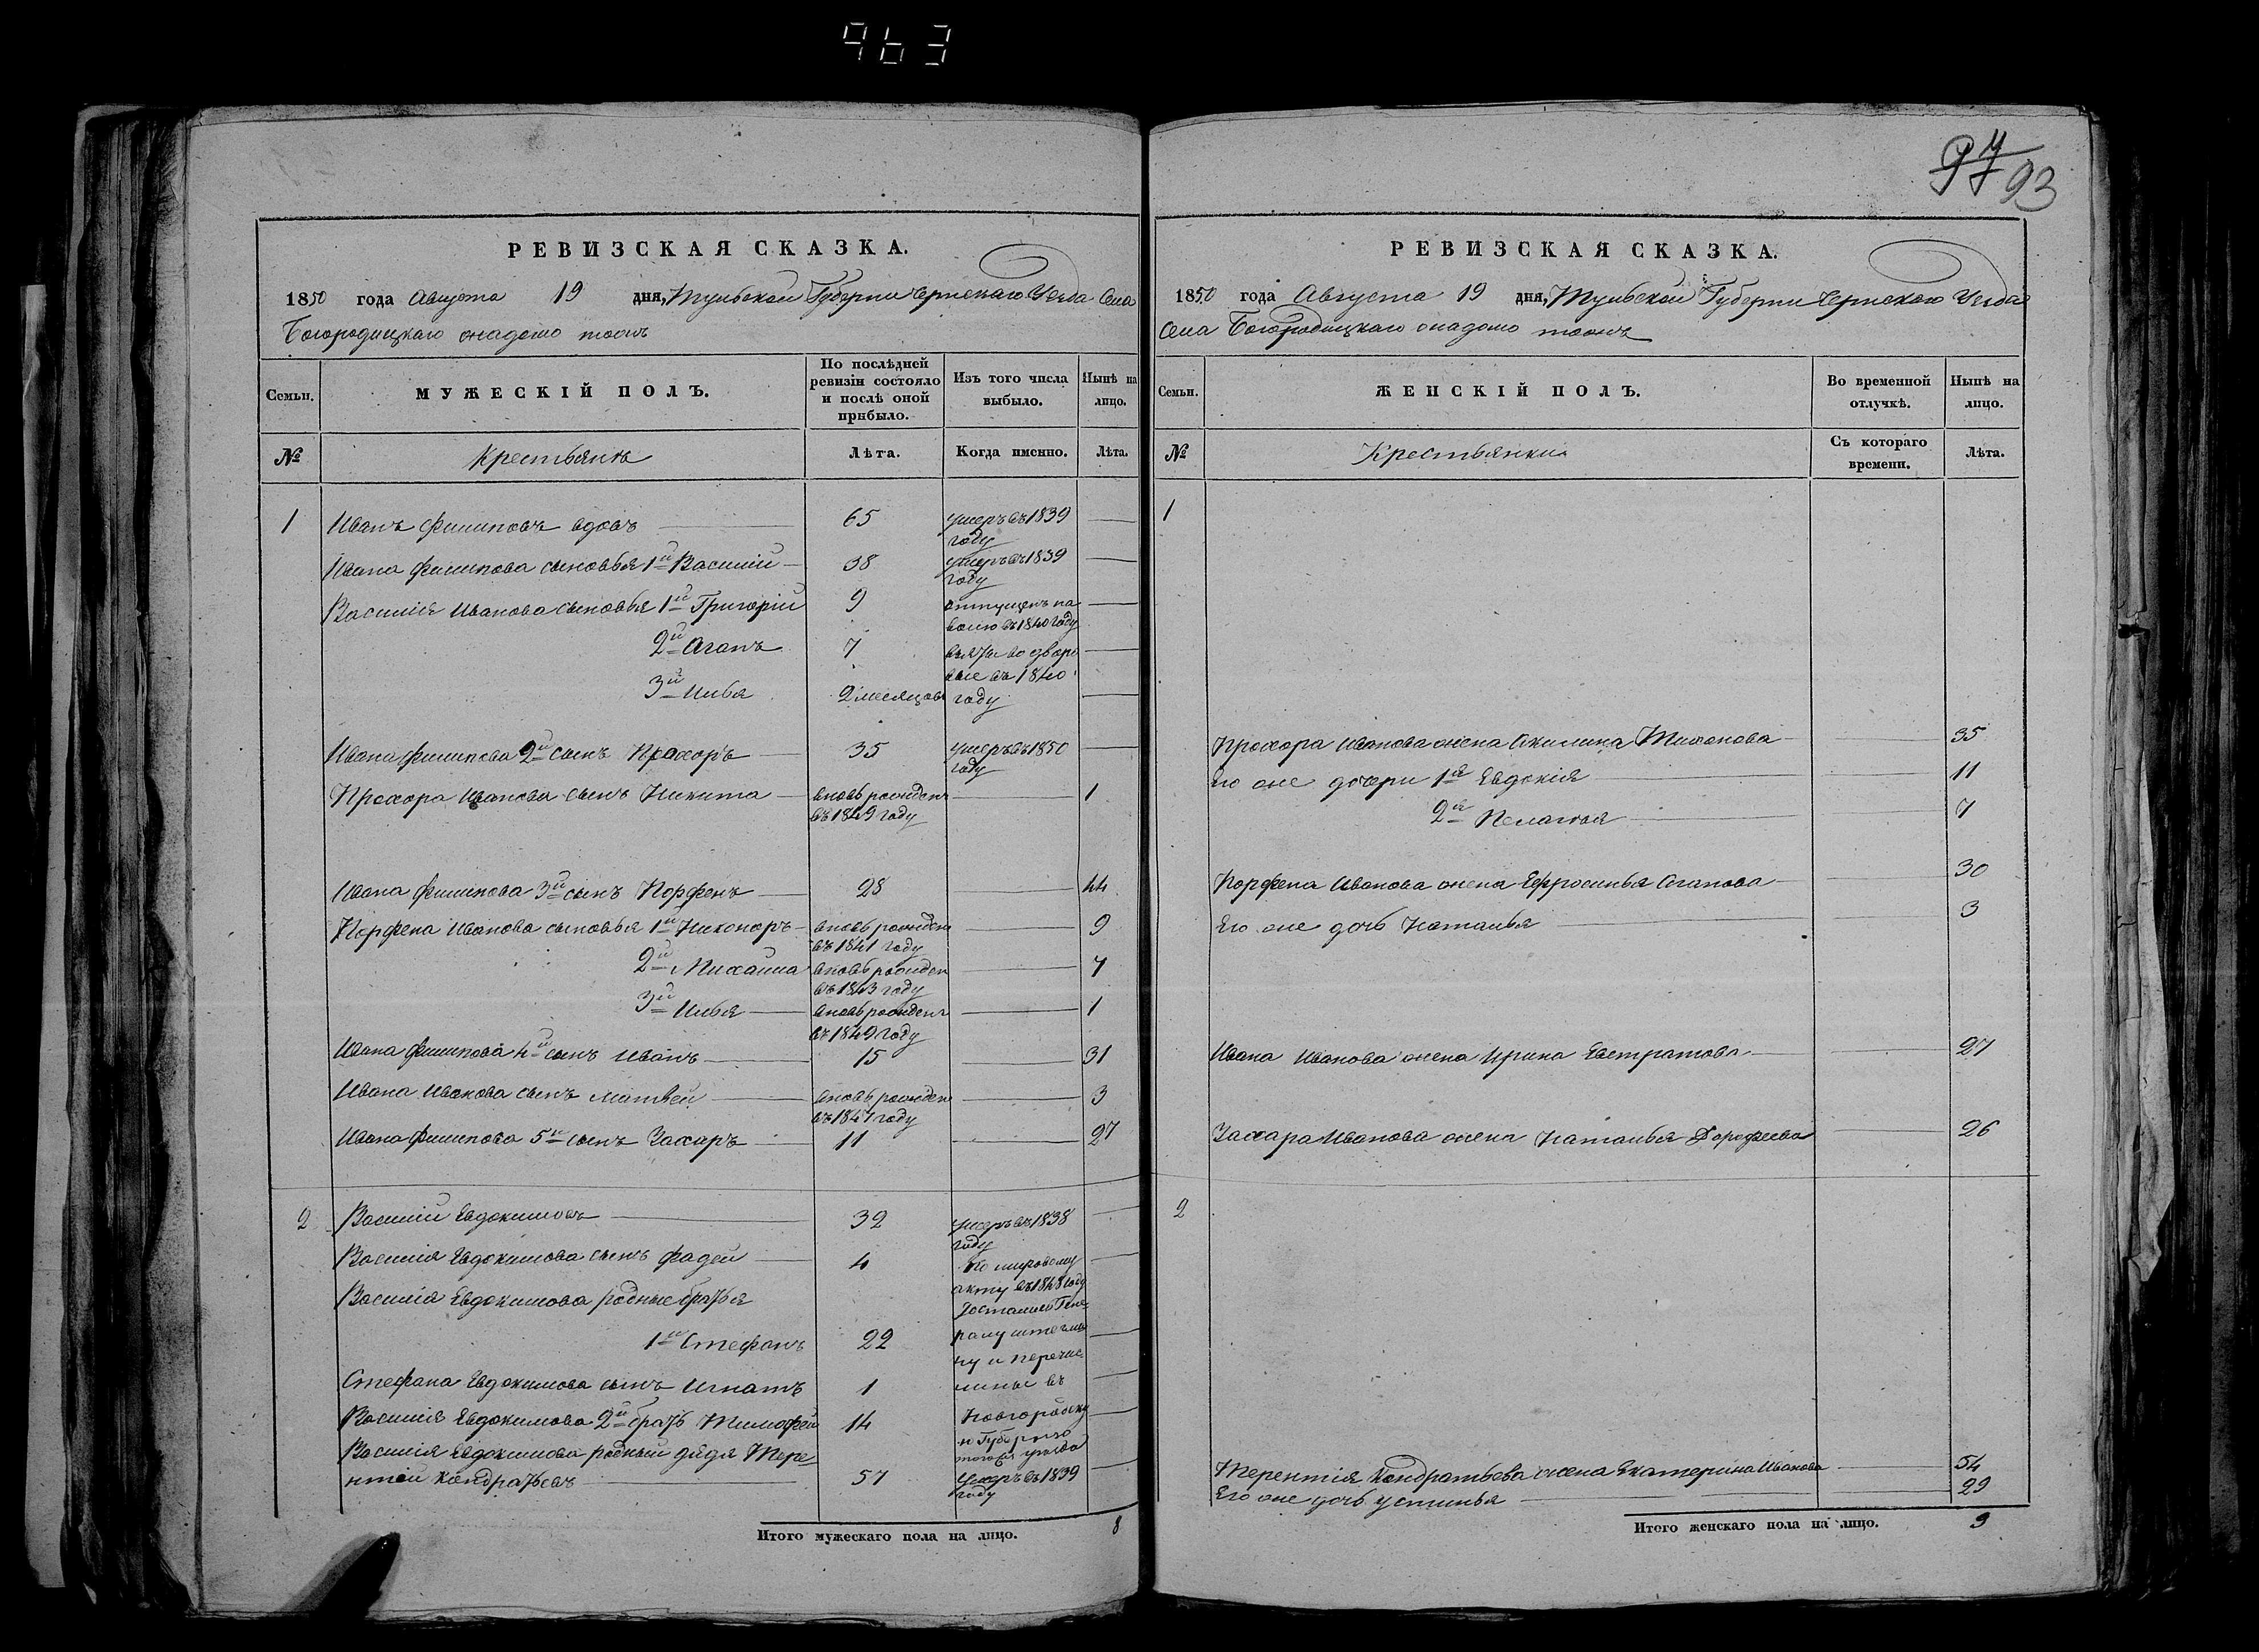 963
97 93
РЕВИЗСКАЯ СКАЗКА.
1850 года Августа 19 дня, Тульской Губернии Чернскаго Уезда Села
Богородицкаго тожъ
Семьи.
МУЖЕСКІЙ ПОЛЪ.
По послѣдней ревизіи состояло и послѣ оной прибыло.
Изъ того числа выбыло.
Нынѣ на лицо.
№
Крестьянъ
Лѣта.
Когда именно.
Лѣта.
1 Иванъ Филиповъ вдовъ 65 умеръ въ 1839 году
Ивана Филипова сыновья 1й Василій 38 умеръ въ 1839 году
Василія Иванова сыновья 1й Григорій 9 отпущенъ на волю въ 1840 году
2й Агапъ 7 взяты во дворовые въ 1840 году
3й Илья 2 месяцовъ
Ивана Филипова 2й сынъ Прохоръ 35 умеръ въ 1850 году
Прохора Иванова сынъ Никита вновь рожденъ въ 1849 году 1
Ивана Филипова 3й сынъ Порфенъ 28 44
Порфена Иванова сыновья 1й Никоноръ вновь рожденъ въ 1841 году 9
2й Михайла вновь рожден въ 1843 году 7
3й Илья вновь рожденъ в 1849 году 1
Ивана Филипова 4й сынъ Иванъ 15 31
Ивана Иванова сынъ Матвей вновь рожден въ 1847 году 3
Ивана Филипова 5й сынъ Захаръ 11 27
2 Василій Евдокимовъ 32 умеръ въ 1838 году
Василія Евдокимова сынъ Фадей 4
Василія Евдокимова родные братья
1й Стефанъ 22
Стефана Евдокимова сынъ Игнатъ 1
Василія Евдокимова 2й братъ Тимофей 14
По мировому
акту въ 1848 году
достались Гене
ралу
ну и перечис
лины въ
Новгородску
ю Губернію
уезда
Василія Евдокимова родный дядя Тере
нтій Кондратьевъ 57 умеръ въ 1839 году
Итого мужескаго пола на лицо. 8
РЕВИЗСКАЯ СКАЗКА.
1850 года Августа 19 дня, Тульской Губернии Чернскаго Уезда
Села Богородицкаго тожъ
Семьи.
ЖЕНСКІЙ ПОЛЪ.
Во временной отлучкѣ.
Нынѣ на лицо.
№
Крестьянки
Съ котораго времени.
Лѣта.
1
Прохора Иванова жена Акилина Тихонова 35
Его же дочери 1я Евдокія 11
2я Пелагея 7
Порфена Иванова жена Ефросинья Агапова 30
Его же дочь Наталья 3
Ивана Иванова жена Ирина Евстратова 27
Захара Иванова жена Наталья Дорофеева 26
2
Терентія Кондратьева жена Екатерина Иванова 54
Его же дочь Устинья 29
Итого женскаго пола на лицо. 9